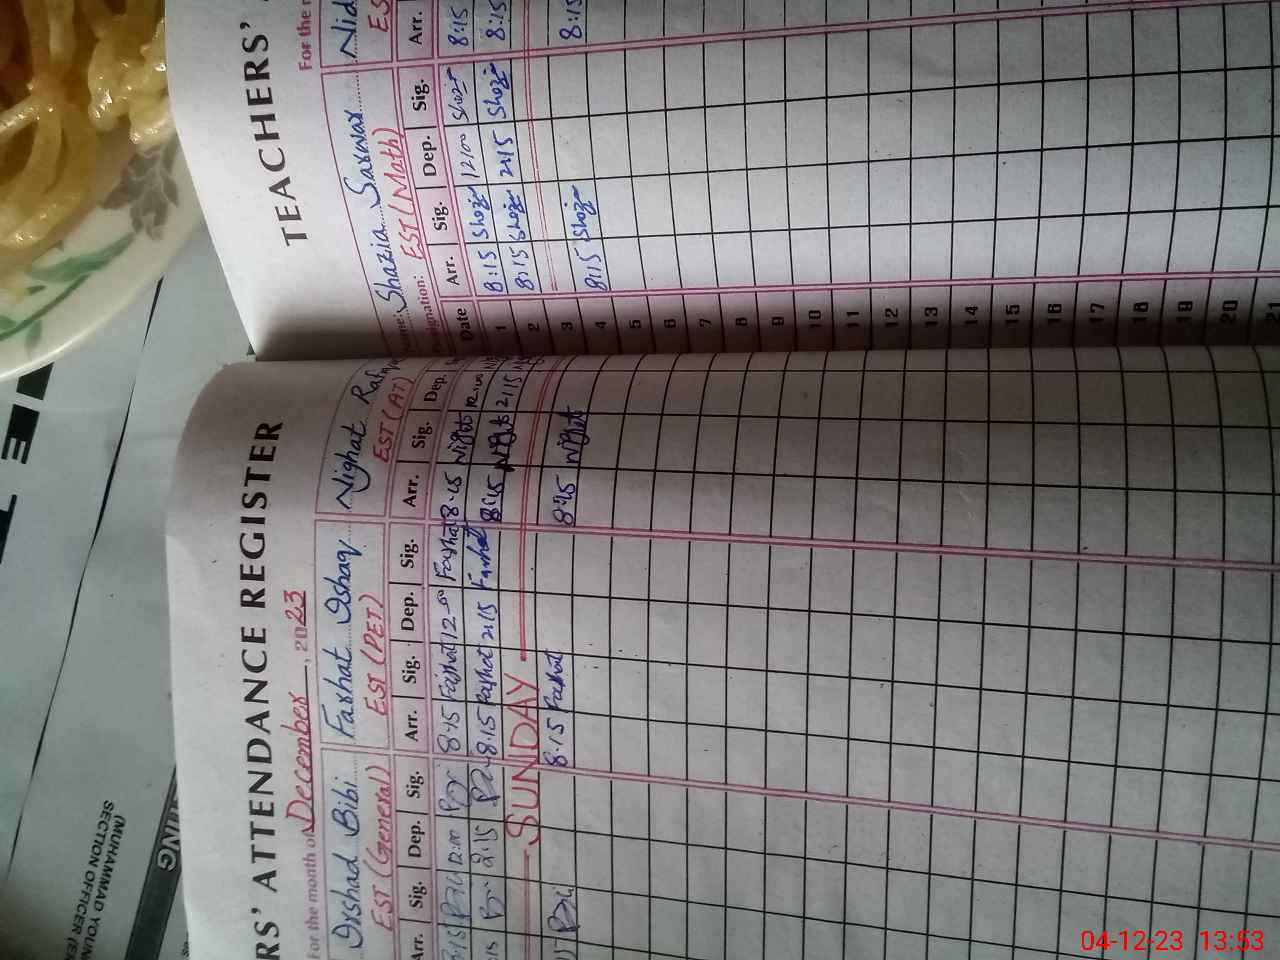 TEACHERS'
For the
Shazia Sarwar
Designation: EST (Math)
Date Arr. Sig. Dep. Sig. Arr.
1 8:15 Shazi 12:00 Shazi 8:15
2 8:15 Shazi 2:15 Shazi 8:15
3
4 8:15 Shazi 8:15
5
6
7
8
9
10
11
12
13
14
15
16
17
18
19
20
21
RS' ATTENDANCE REGISTER
For the month of December, 2023
Irshad Bibi Farhat Ishaq Nighat
EST (General) EST (PET) EST (AT)
Arr. Sig. Dep. Sig. Arr. Sig. Dep. Sig. Arr. Sig. Dep.
12:00 8:15 Farhat 12-00 Farhat 8:15 Nighat 12:00
2:15 8:15 Farhat 2:15 Farhat 8:15 Nighat 2:15
SUNDAY
8:15 Farhat 8:15 Nighat
(MUHAMMAD YOUN
SECTION OFFICER (E
TING
04-12-23 13:53